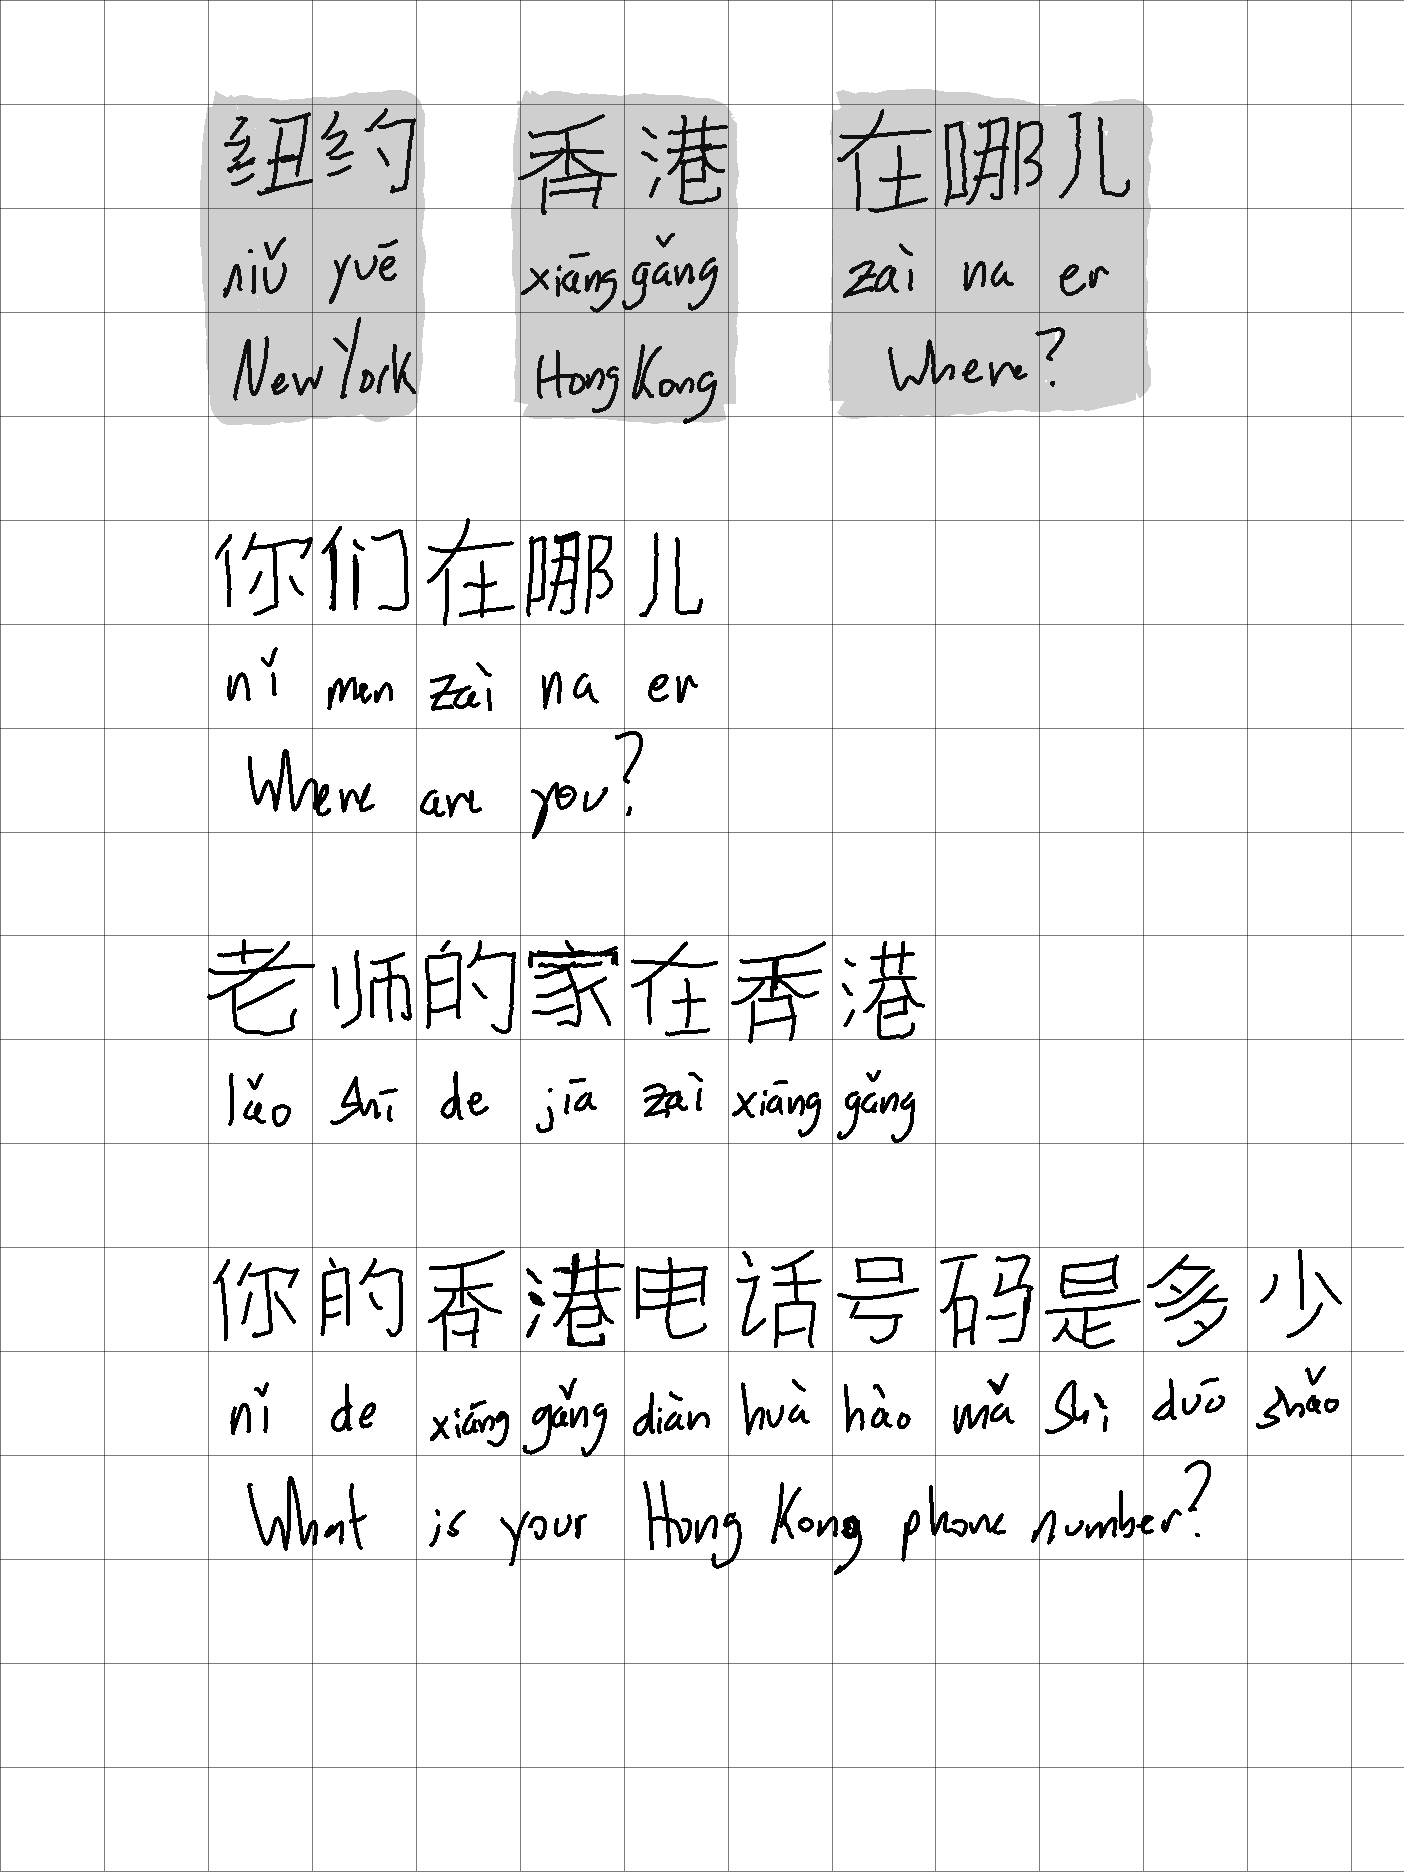 纽约 香港 在哪儿
niǔ yuē xiāng gǎng zài na er
New York Hong Kong Where?
你们在哪儿
nǐ men zài na er
Where are you?
老师的家在香港
lǎo shī de jīa zaì xiāng gǎng
你的香港电话号码是多少
nǐ de xiāng gǎng diàn huà hào mǎ shì duō shǎo
What is your Hong Kong phone number?